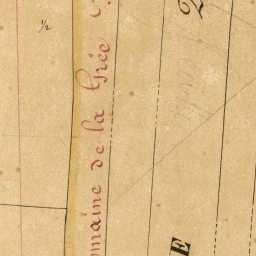 ½
omaine de la Grée
E